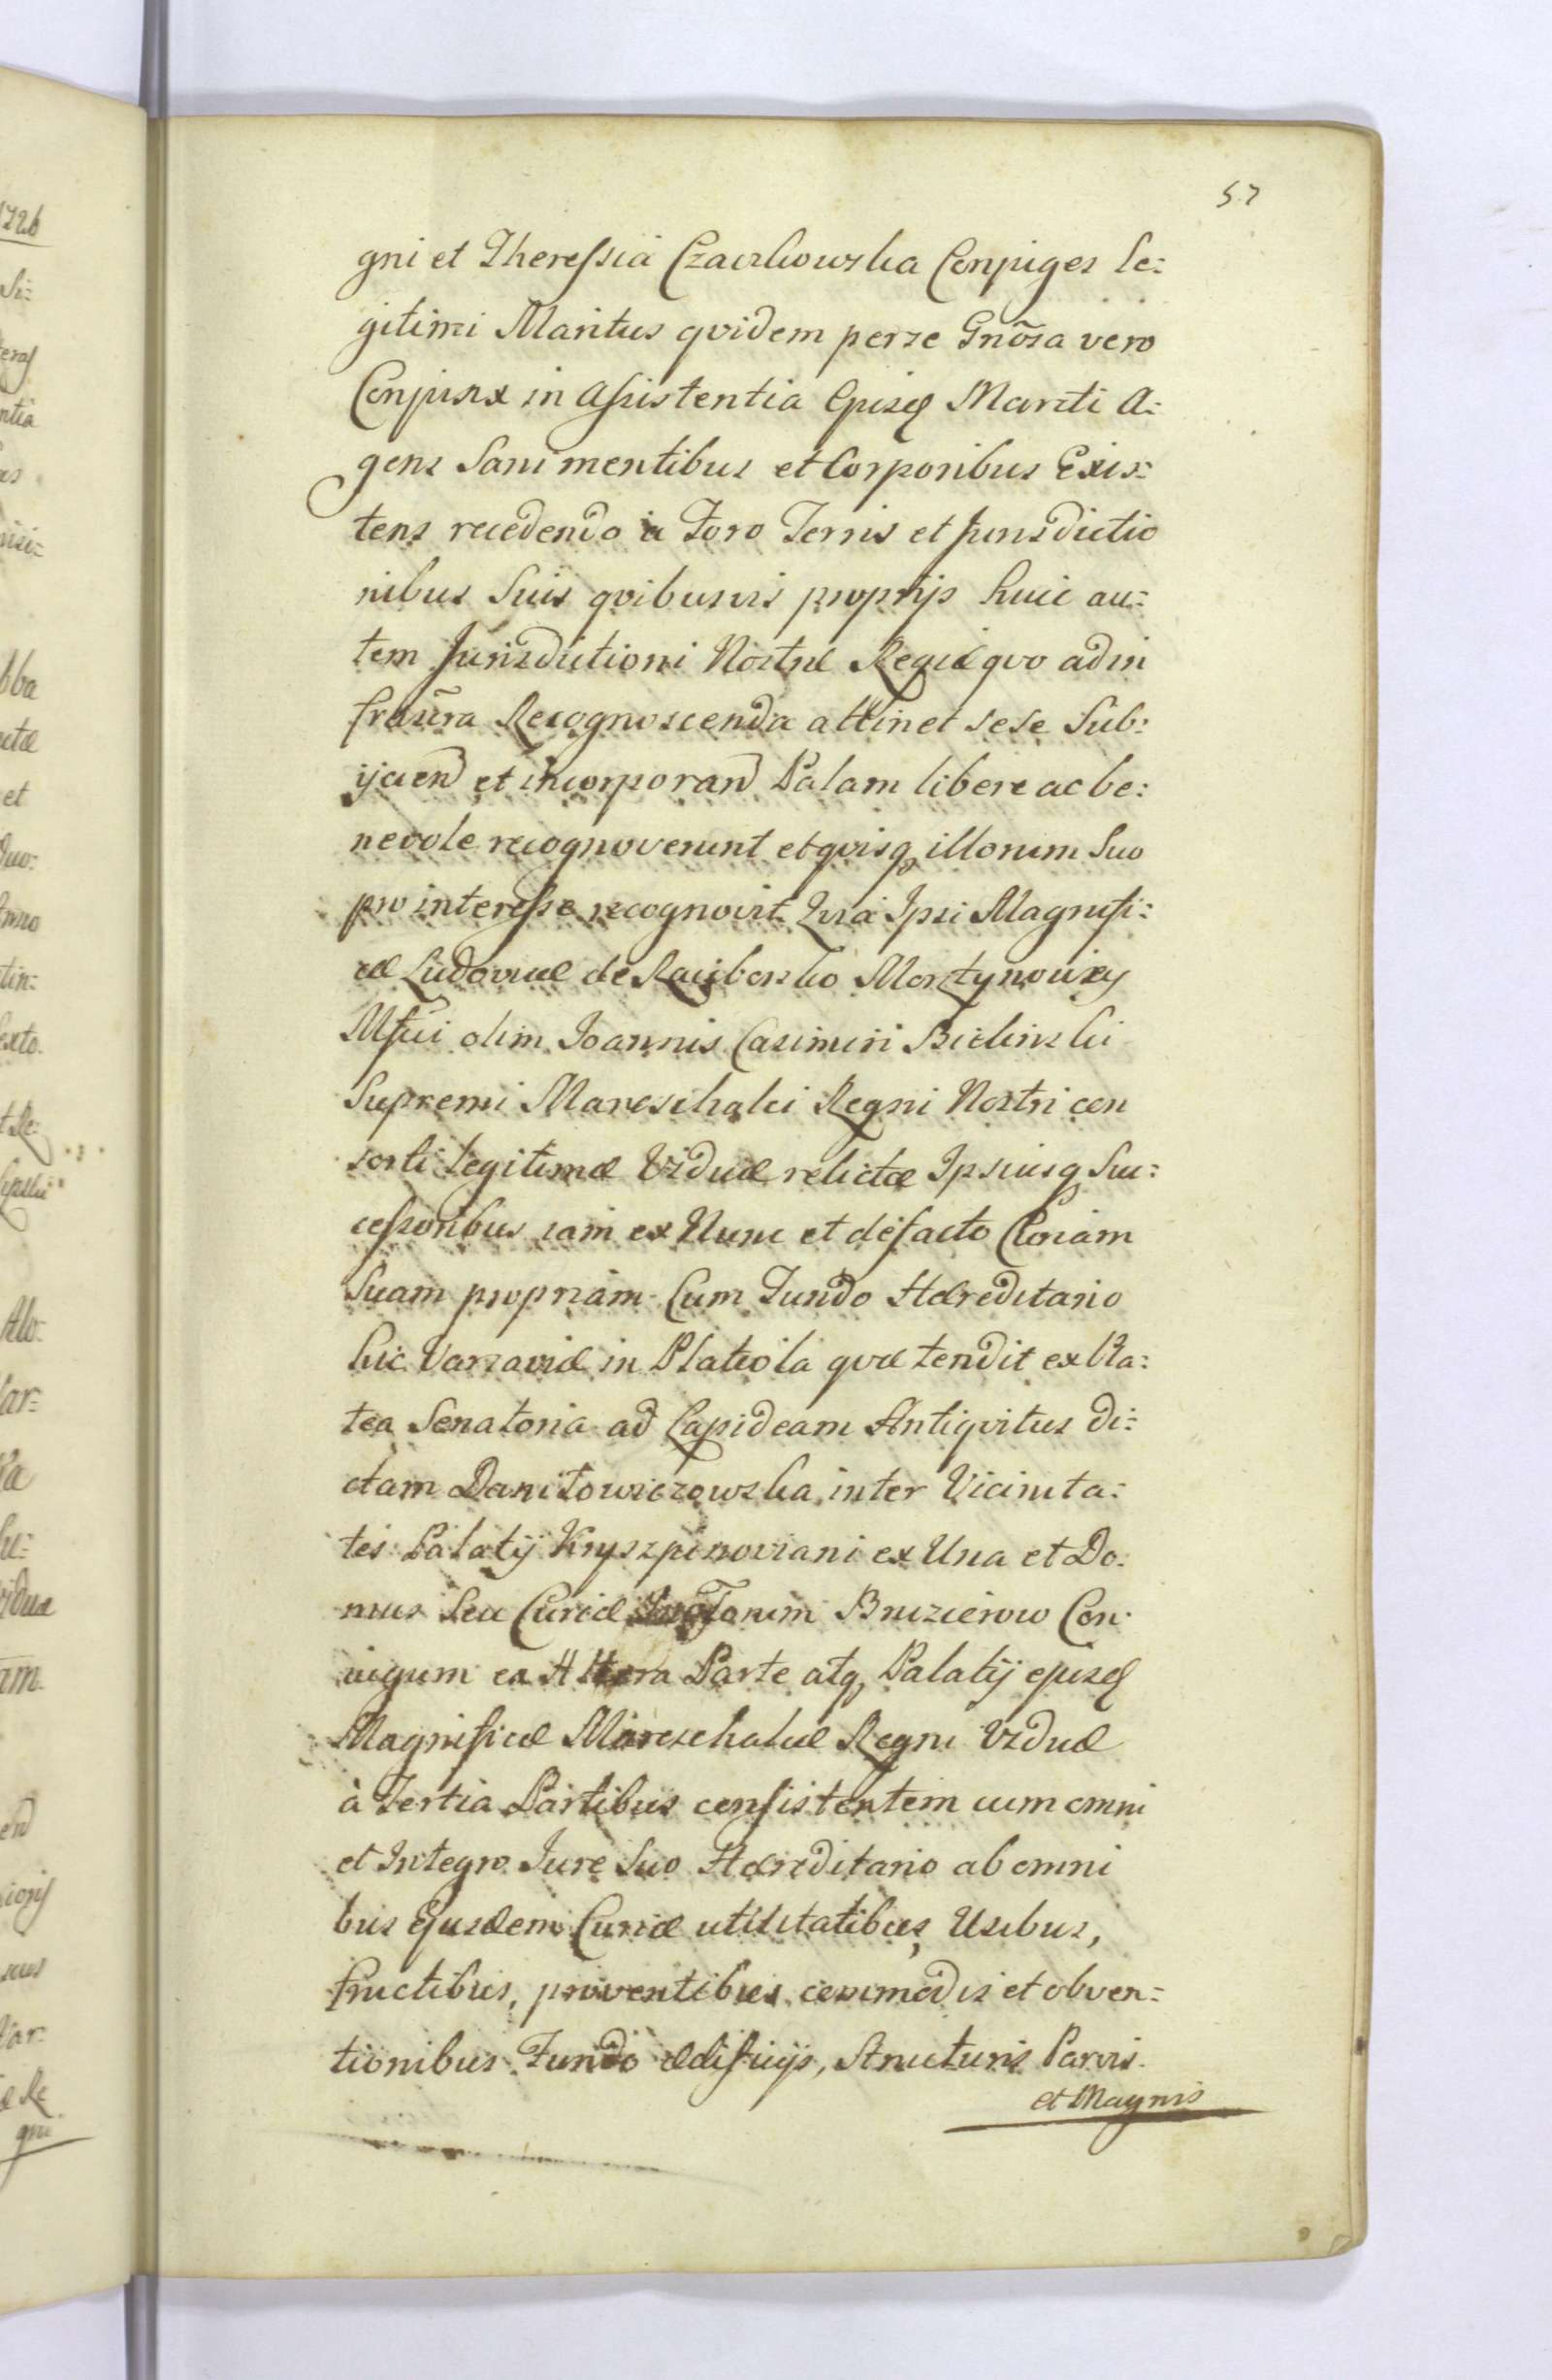 57
gni et Theressia Czaykowska Conjuges le=
gitimi Maritus qvidem perse Gnosa vero
Conjunx in Assistentia Ejusd Mariti A=
gens Sani mentibus et Corporibus Exis=
tens recedendo à Foro Terris et Jurisdictio
nibus Suis qvibusvis proprijs huic au=
tem Jurisdictioni Nostræ Regiæ qvo ad in
frascra Recognoscenda attinet sese Sub=
ijciend et incorporand Palam libere ac be=
nevole recognoverunt et qvisq illorum Suo
pro interesse recognovit Qvia Ipsi Magnifi=
cæ Ludovicæ de Morztynowny
Mfci olim Joannis Casimiri Bielinski
Supremi Mareschalci Regni Nostri con
sorti legitimæ Viduæ relictæ Ipsiusq Suc=
cessoribus iam ex Nunc et defacto Curiam
Suam propriam Cum Fundo Hæreditario
hic Varsaviæ in Plateola qvæ tendit ex Pla=
tea Senatoria ad Lapideam Antiqvitus di=
ctam Daniłowiczowska inter Vicinita=
tes Palatij Kryszpinoviani ex Una et Do=
mus Seu Curiæ Bruzierow Con
iugum ex Altera Parte atq Palatij ejusd
Magnificæ Mareschalcæ Regni Viduæ
à Tertia Partibus consistentem cum omni
et Integro Jure Suo Hæreditario ab omni
bus Ejusdem Curiæ utilitatibus, Usibus,
fructibus, proventibus commodis et obven=
tionibus Fundo ædificijs, Structuris Parvis
et Magnis